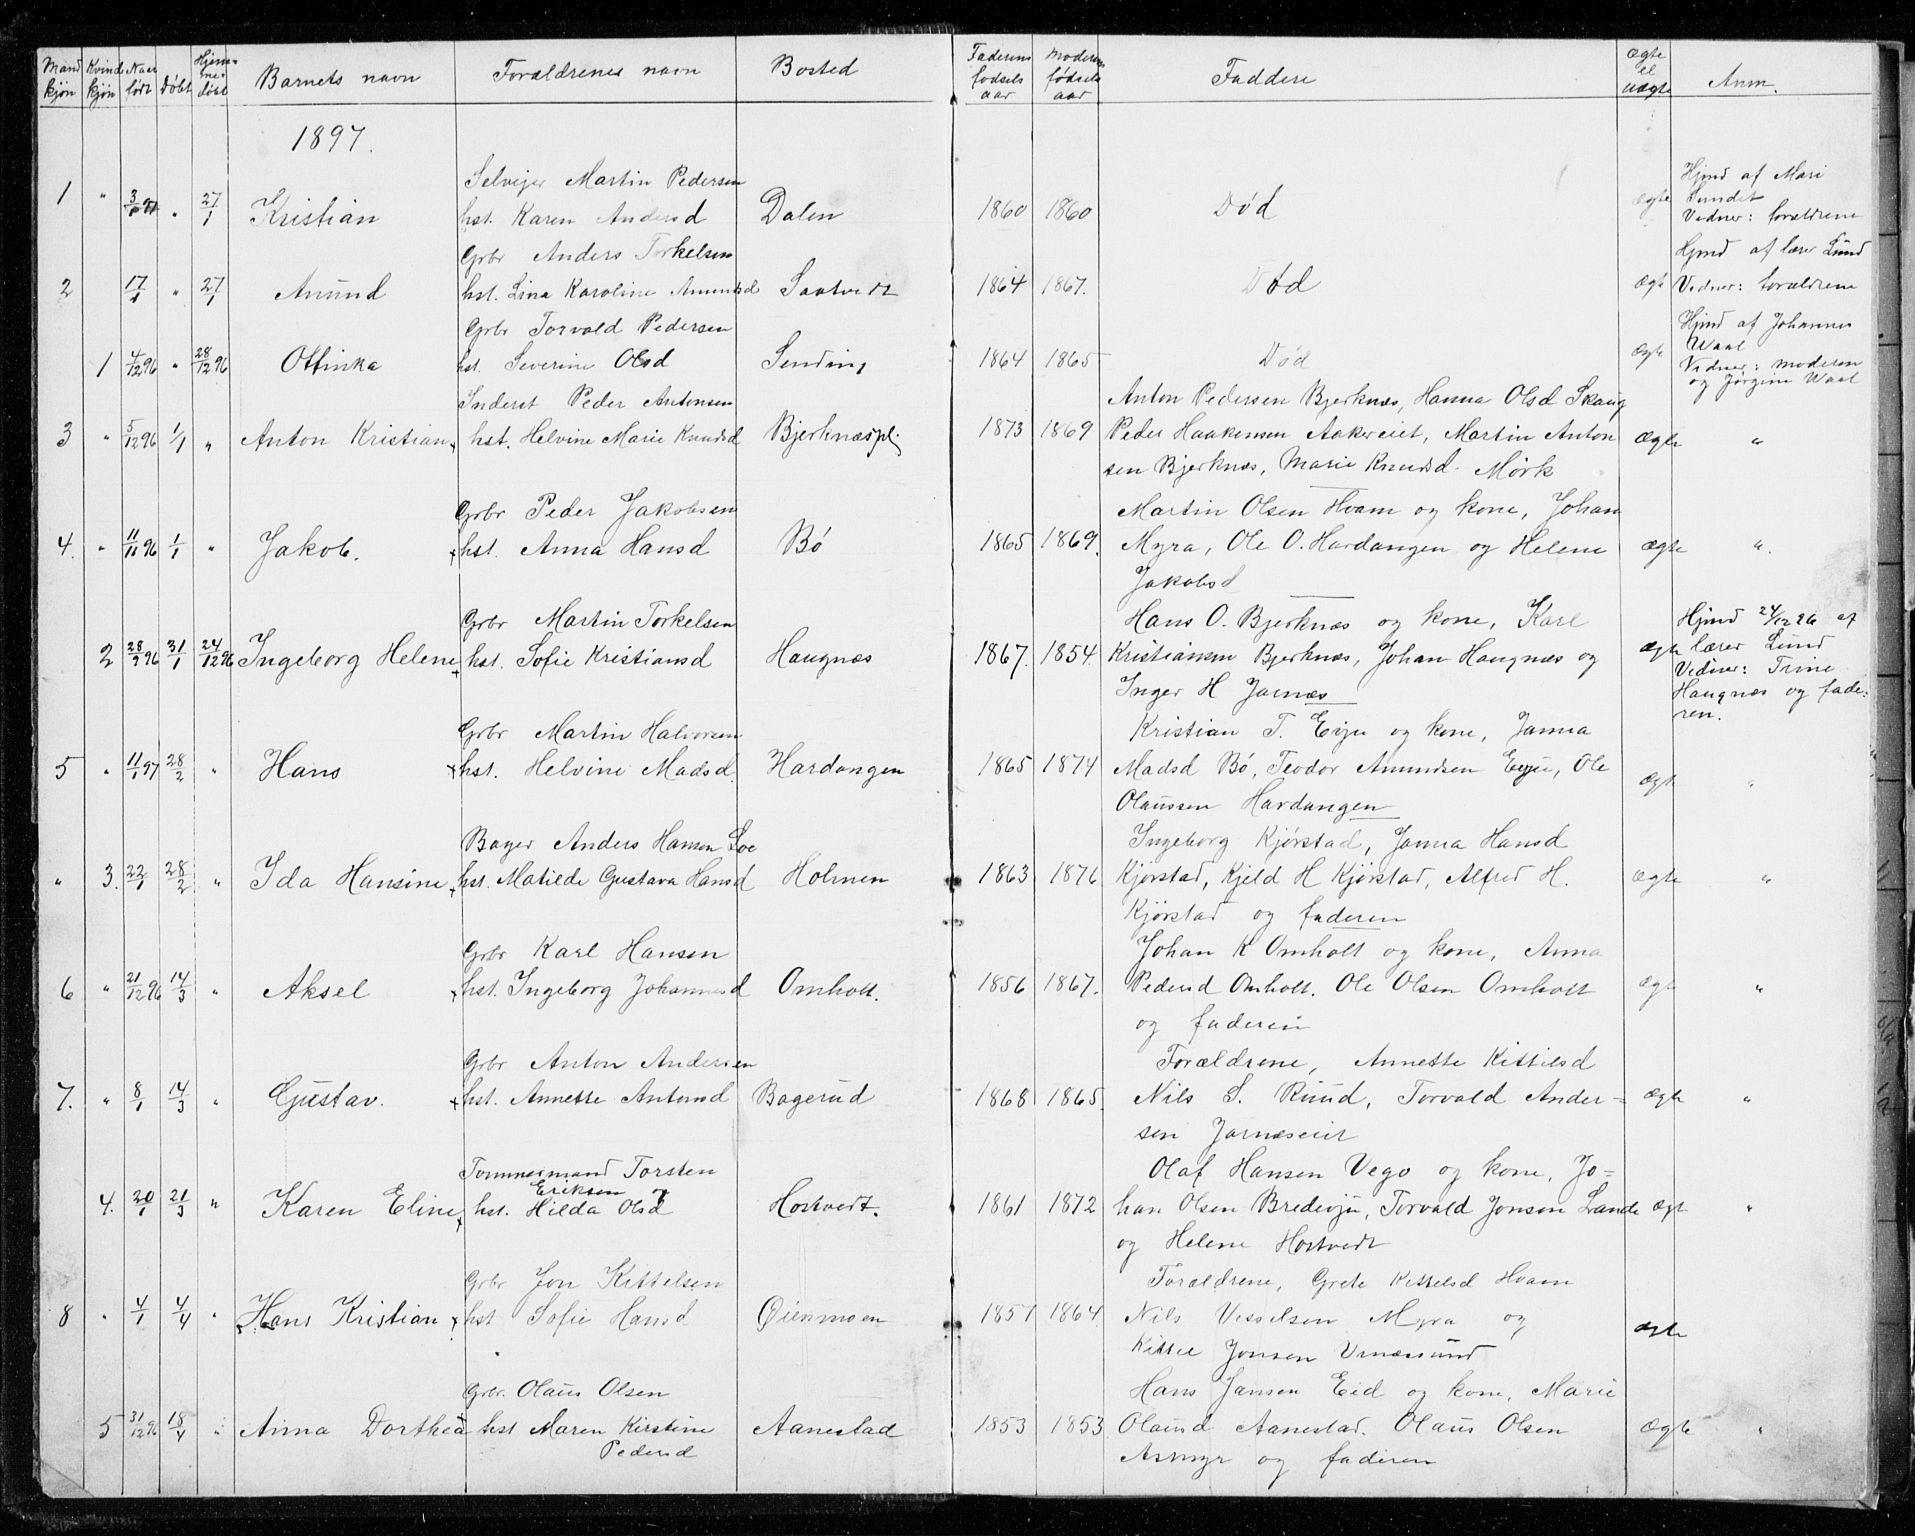 Mand kjön | Kvind kjön | Naar födt | Döbt | Hjem- me- döbt | Barnets navn | Forældrenes navn | Bosted | Faderens fødsels aar | Moderens fødsels aar | Faddere | Ægte el uægte | Anm.
1897.
Selveier Martin Pedersen | Hjmd af Mari
1 " " 27/1 Kristian | hst. Karen Andersd | Dalen | 1860 | 1860 | Død | ægte | Sundet
Vedner: forældrene
Grbr Anders Torkelsen | Hjmd af lærer Lund
2 17/1 " 27/1 Anund | hst. Lina Karoline Amundsd | Saatvedt | 1864 | 1867. | Død | ægte | Vedner: forældrene
Grbr Torvald Pedersen | Hjmd af Johannes
1 4/12 96 " 28/12 96 Ottinka | hst. Severine Olsd | Sending | 1864 | 1865 | Død | ægte | Waal
Vedner: moderen
og Jørgine Waal
Inderst Peder Antonsen | Anton Pedersen Bjerknæs, Hanna Olsd Skaug
3 " 5/12 96 1/1 " Anton Kristian | hst. Helvine Marie Knudsd | Bjerknæspl. | 1873 | 1869 | Peder Haakensen Aakereiet, Martin Anton | ægte | "
sen Bjerknæs, Marie Knudsd. Mörk
Grbr Peder Jakobsen | Martin Olsen Hvam og kone, Johan
4. " 11/11 96 1/1 " Jakob. | hst. Anna Hansd | Bö | 1865 | 1869. | Myra, Ole O. Hardangen og Helene | ægte | ".
Jakobsd
Grbr Martin Torkelsen | Hans O. Bjerknæs og kone, Karl | Hjmd 24/12 96 af
2 28/9 96 31/1 24/12 96 Ingeborg Helene | hst. Sofie Kristiansd | Haugnæs | 1867. | 1854. | Kristiansen Bjerknæs, Johan Haugnæs og | ægte | lærer Lund
Inger H Jarnæs | Vedner: Trine
Haugnæs og fade-
ren.
Grbr Martin Halvorsen | Kristian T. Evju og kone, Janna
5 " 11/1 97 28/2 " Hans | hst. Helvine Madsd. | Hardangen | 1865 | 1874 | Madsd Bö, Teodor Amundsen Evju, Ole | ægte | "
Olaussen Hardangen
Bager Anders Hansen Loe | Ingeborg Kjörstad, Janna Hansd
" 3. 22/1 28/2 " Ida Hansine | hst. Matilde Gustava Hansd | Holmen | 1863 | 1876 | Kjörstad, Kjeld H Kjörstad, Alfred H. | ægte | "
Kjörstad og faderen
Grbr Karl Hansen | Johan K Omholt og kone, Anna
6 " 21/12 96 14/3 " Aksel | hst. Ingeborg Johannesd | Omholt. | 1856 | 1867. | Pedersd Omholt. Ole Olsen Omholt | ægte | "
og faderen
Grbr Anton Andersen | Forældrene, Annette Kittilsd
7. " 8/1 14/3 " Gustav. | hst. Annette Antonsd | Bagerud | 1868 | 1865. | Nils S. Ruud, Torvald Ander- | ægte | "
sen Jarnæseiet
Tømmermand Torsten | Olaf Hansen Vego og kone, Jo-
Eriksen og
4. 20/1 21/3 " Karen Eline | hst. Hilda Olsd | Hostvedt. | 1861 | 1872 | han Olsen Bredevju, Torvald Jonsen Lande | ægt | "
og Helene Hostvedt
Grbr Jon Kittelsen | Forældrene, Grete Kittelsd Hvam
8 " 4/1 4/4 " Hans Kristian | hst Sofie Hansd | Øienmoen | 1857 | 1864 | Nils Vesselsen Myra og | ægte
Kittel Jonsen Vrnæssund
Grbr. Olaus Olsen | Hans Jansen Eid og kone, Marie
5 31/12 96 18/4 " Anna Dorthea | hst Maren Kirstine | Aanestad | 1853 | 1853 | Olausd Aanestad. Olaus Olsen | ægte | "
Pedersd | Asmyr og faderen